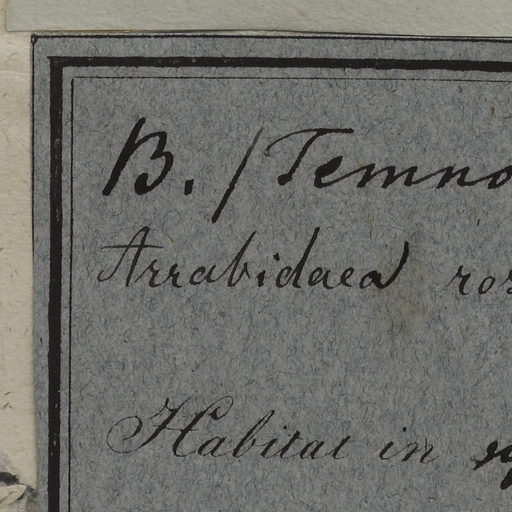 B. / Temno
Arrabidaea ros
Habitat in